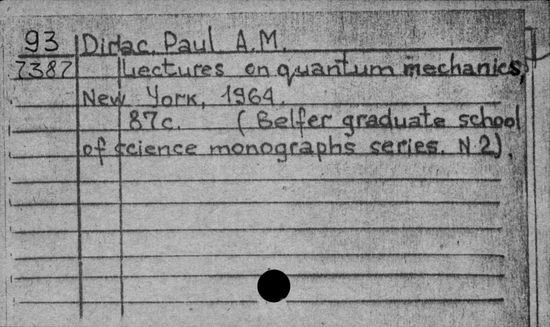 93 Dirac, Paul A.M.
7387 Lectures on quantum mechanics,
New York, 1964.
87c. (Belfer graduate school
of science monographs series. N 2).